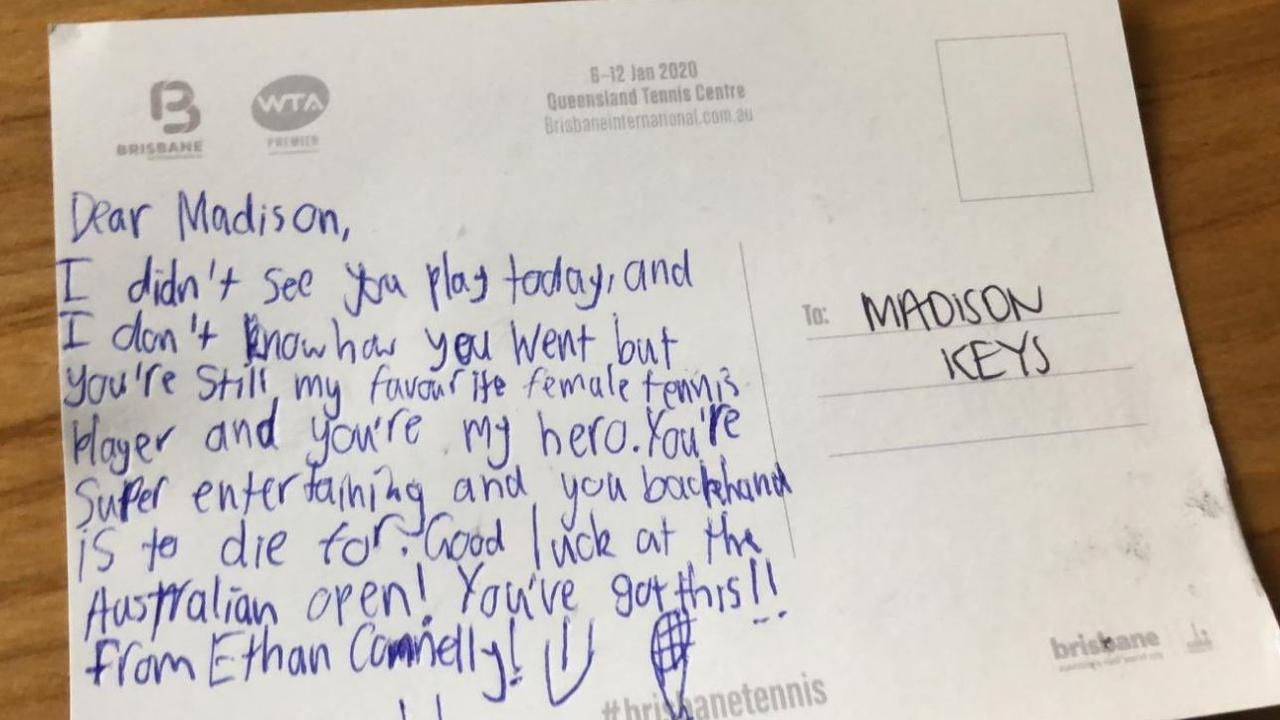 B
BRISBANE
WTA
PREMIER
6-12 Jan 2020
Queensland Tennis Centre
Brisbaneinternational.com.au
Dear Madison,
I didn't see you play today, and
I don't know how you went but
you're still my favourite female tennis
player and you're my hero. You're
super entertaining and you backhand
is to die for. Good luck at the
Australian open! You've got this!!
From Ethan Connelly!
To: MADISON
KEYS
brisbane
#brisbanetennis